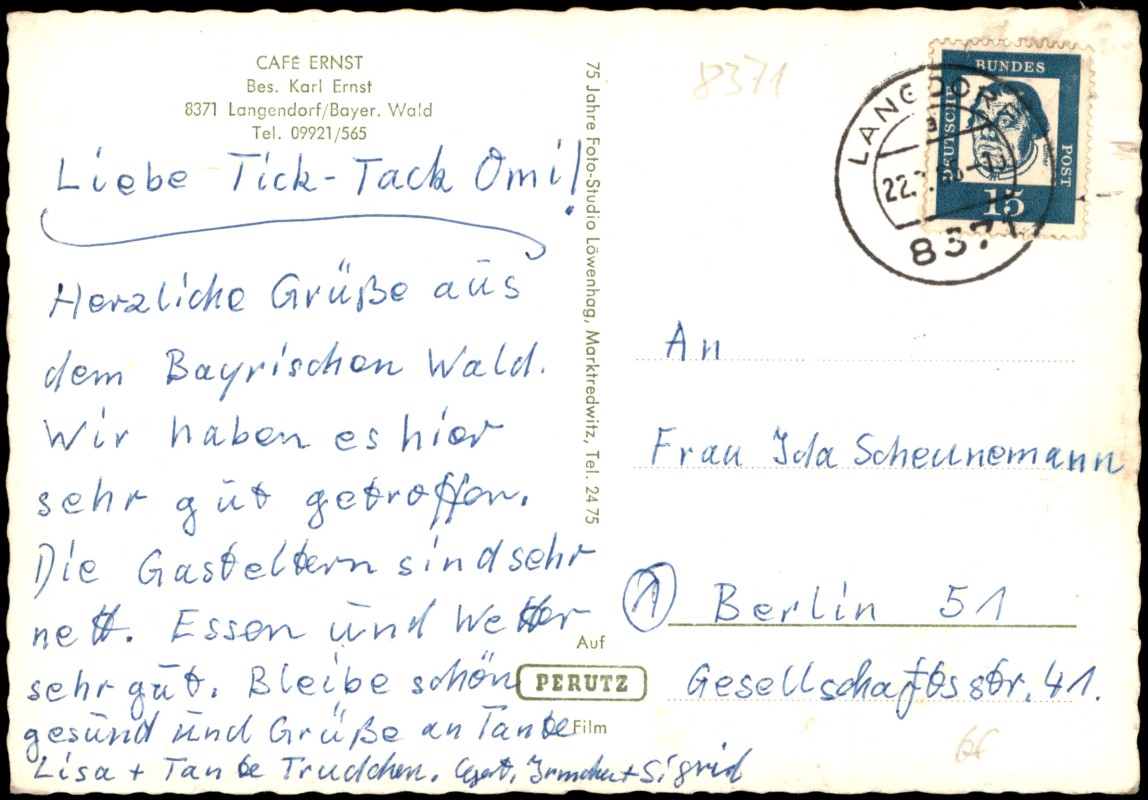 CAFÉ ERNST
Bes. Karl Ernst
8371 Langendorf/Bayer. Wald
Tel. 09921/565
Liebe Tick-Tack Omi!
Herzliche Grüße aus
dem Bayrischen Wald.
Wir haben es hier
sehr gut getroffen.
Die Gasteltern sind sehr
nett. Essen und Wetter
sehr gut. Bleibe schön
gesund und Grüße an Tante
Lisa + Tante Trudchen. Gert, + Sigrid
75 Jahre Foto-Studio Löwenhag, Marktredwitz, Tel. 2475
Auf
PERUTZ
Film
8371
DEUTSCHE
BUNDES
POST
15
LANGDORF
a
8371
An
Frau Ida Scheunemann
1 Berlin 51
Gesellschaftsstr. 41.